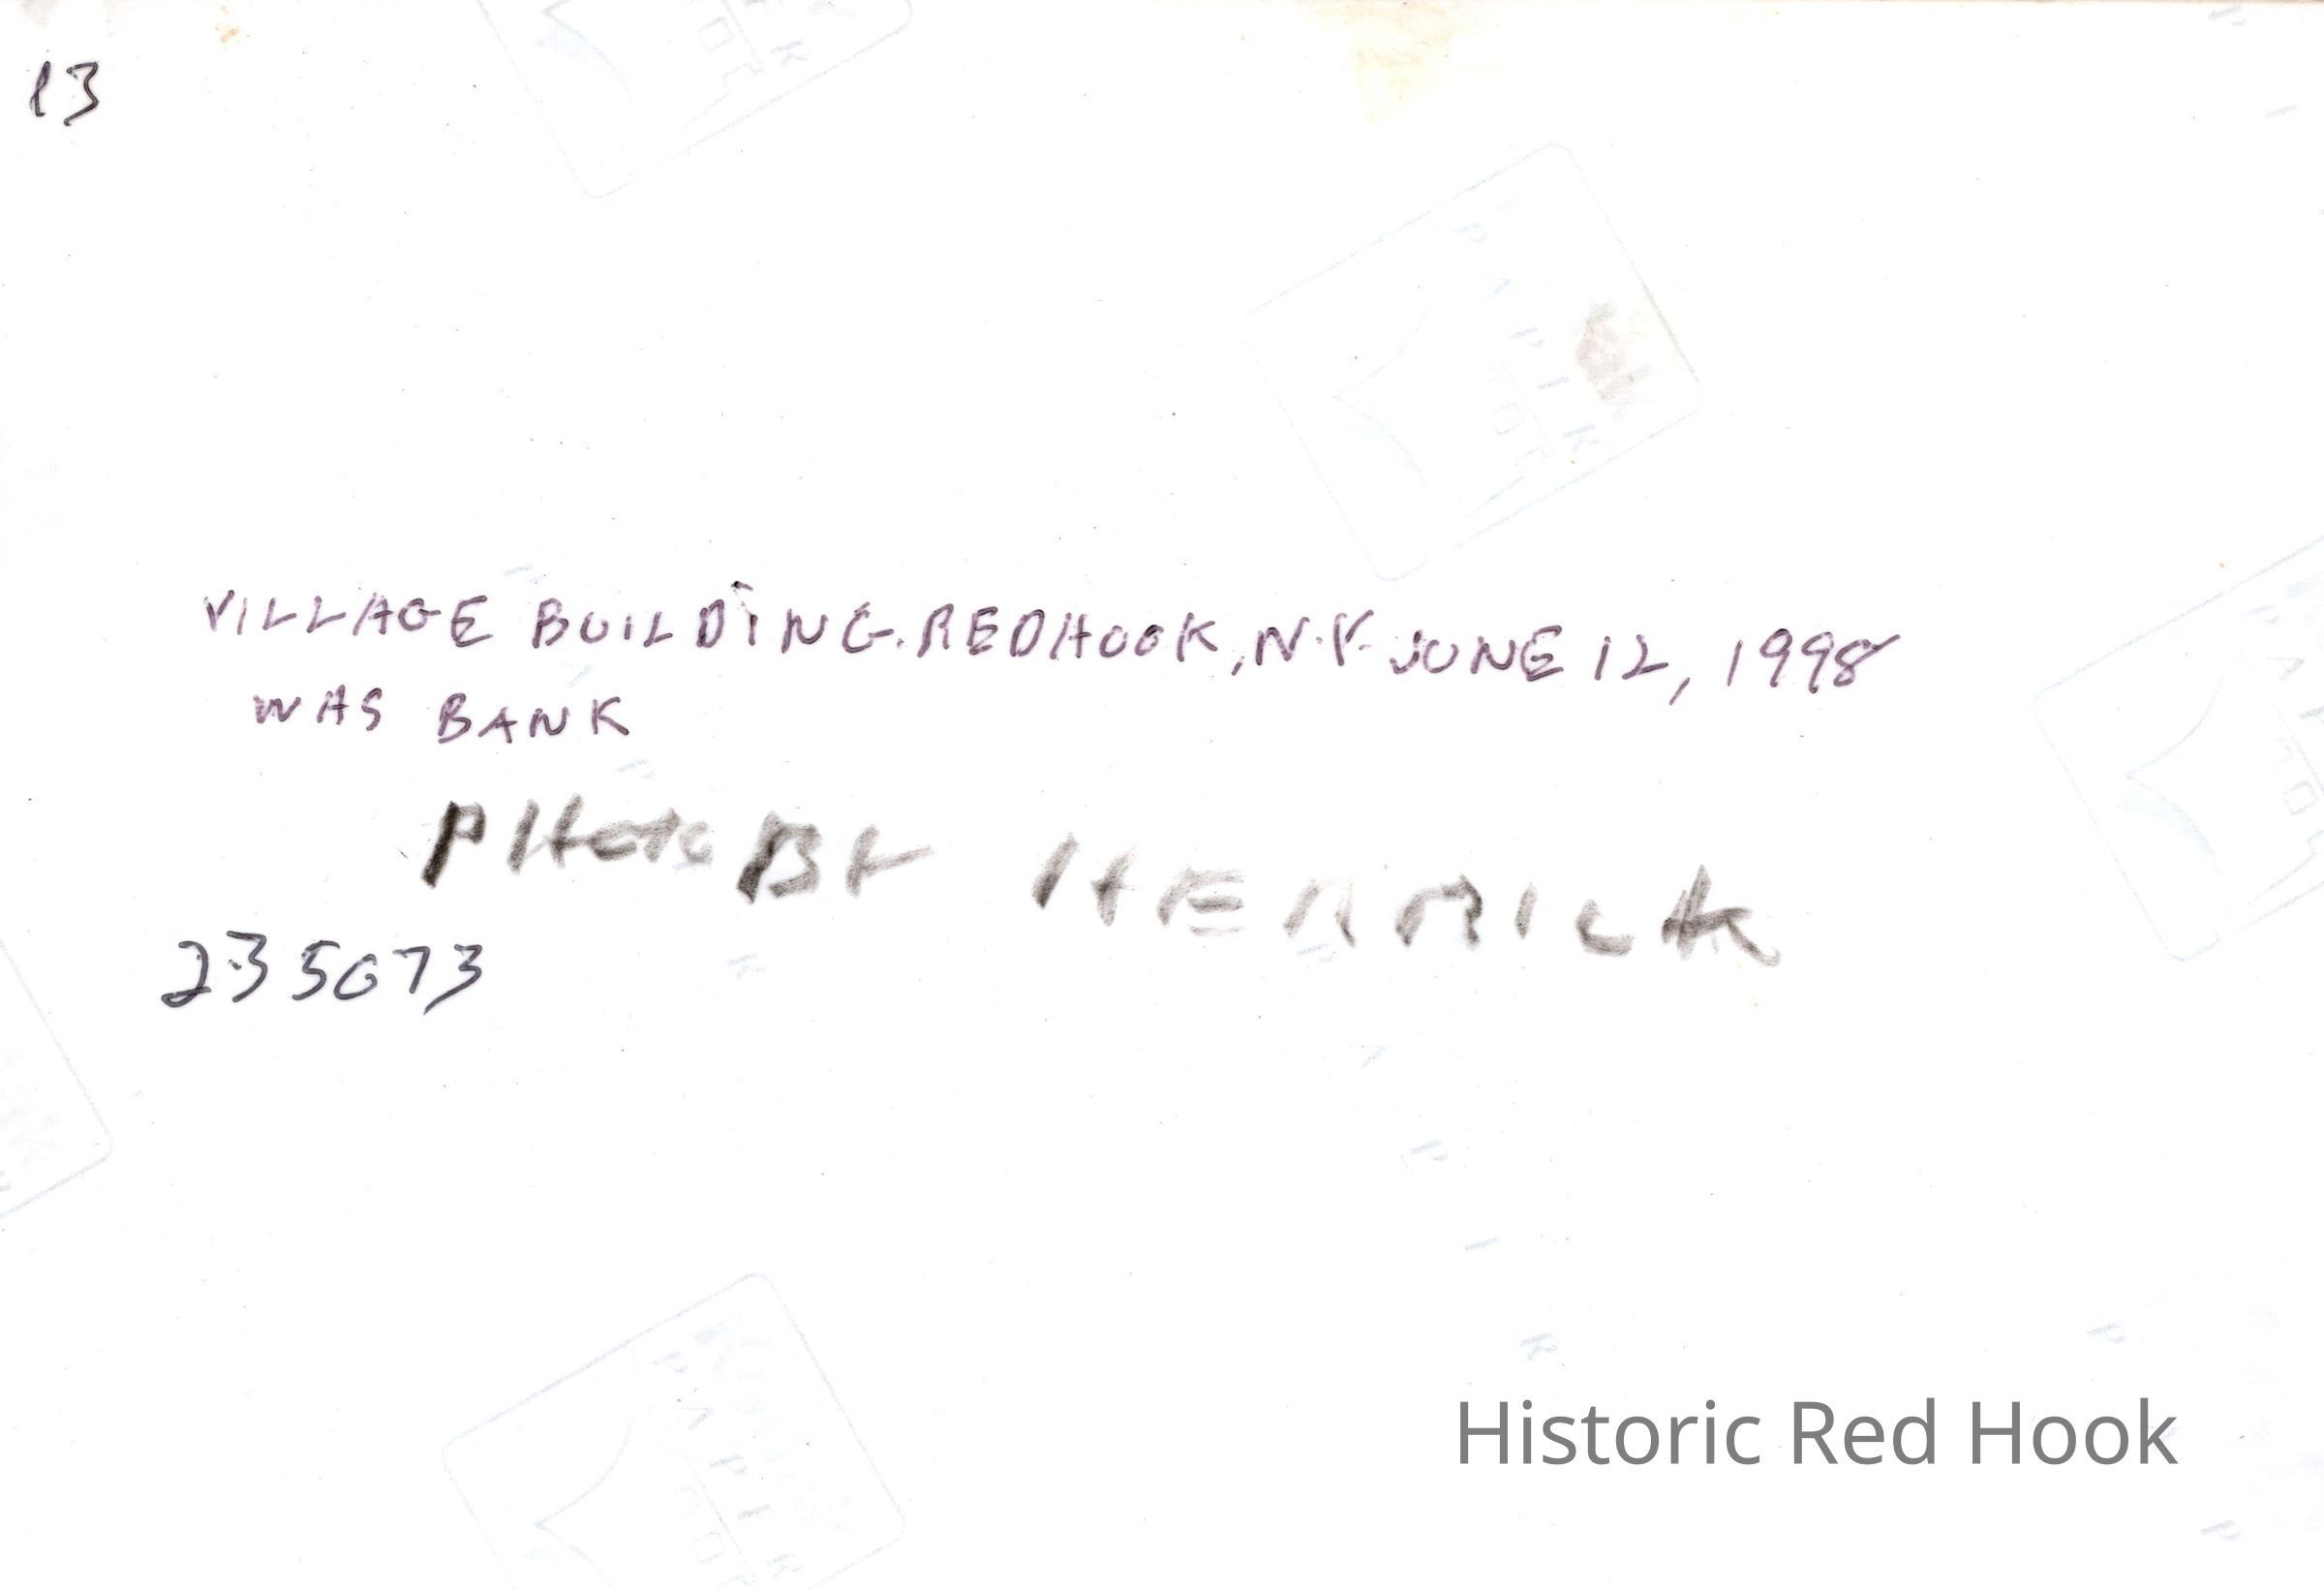 13
VILLAGE BUILDING. REDHOOK, N.Y. JUNE 12, 1998
WAS BANK
PHOTO BY HERRICK
235073
Historic Red Hook